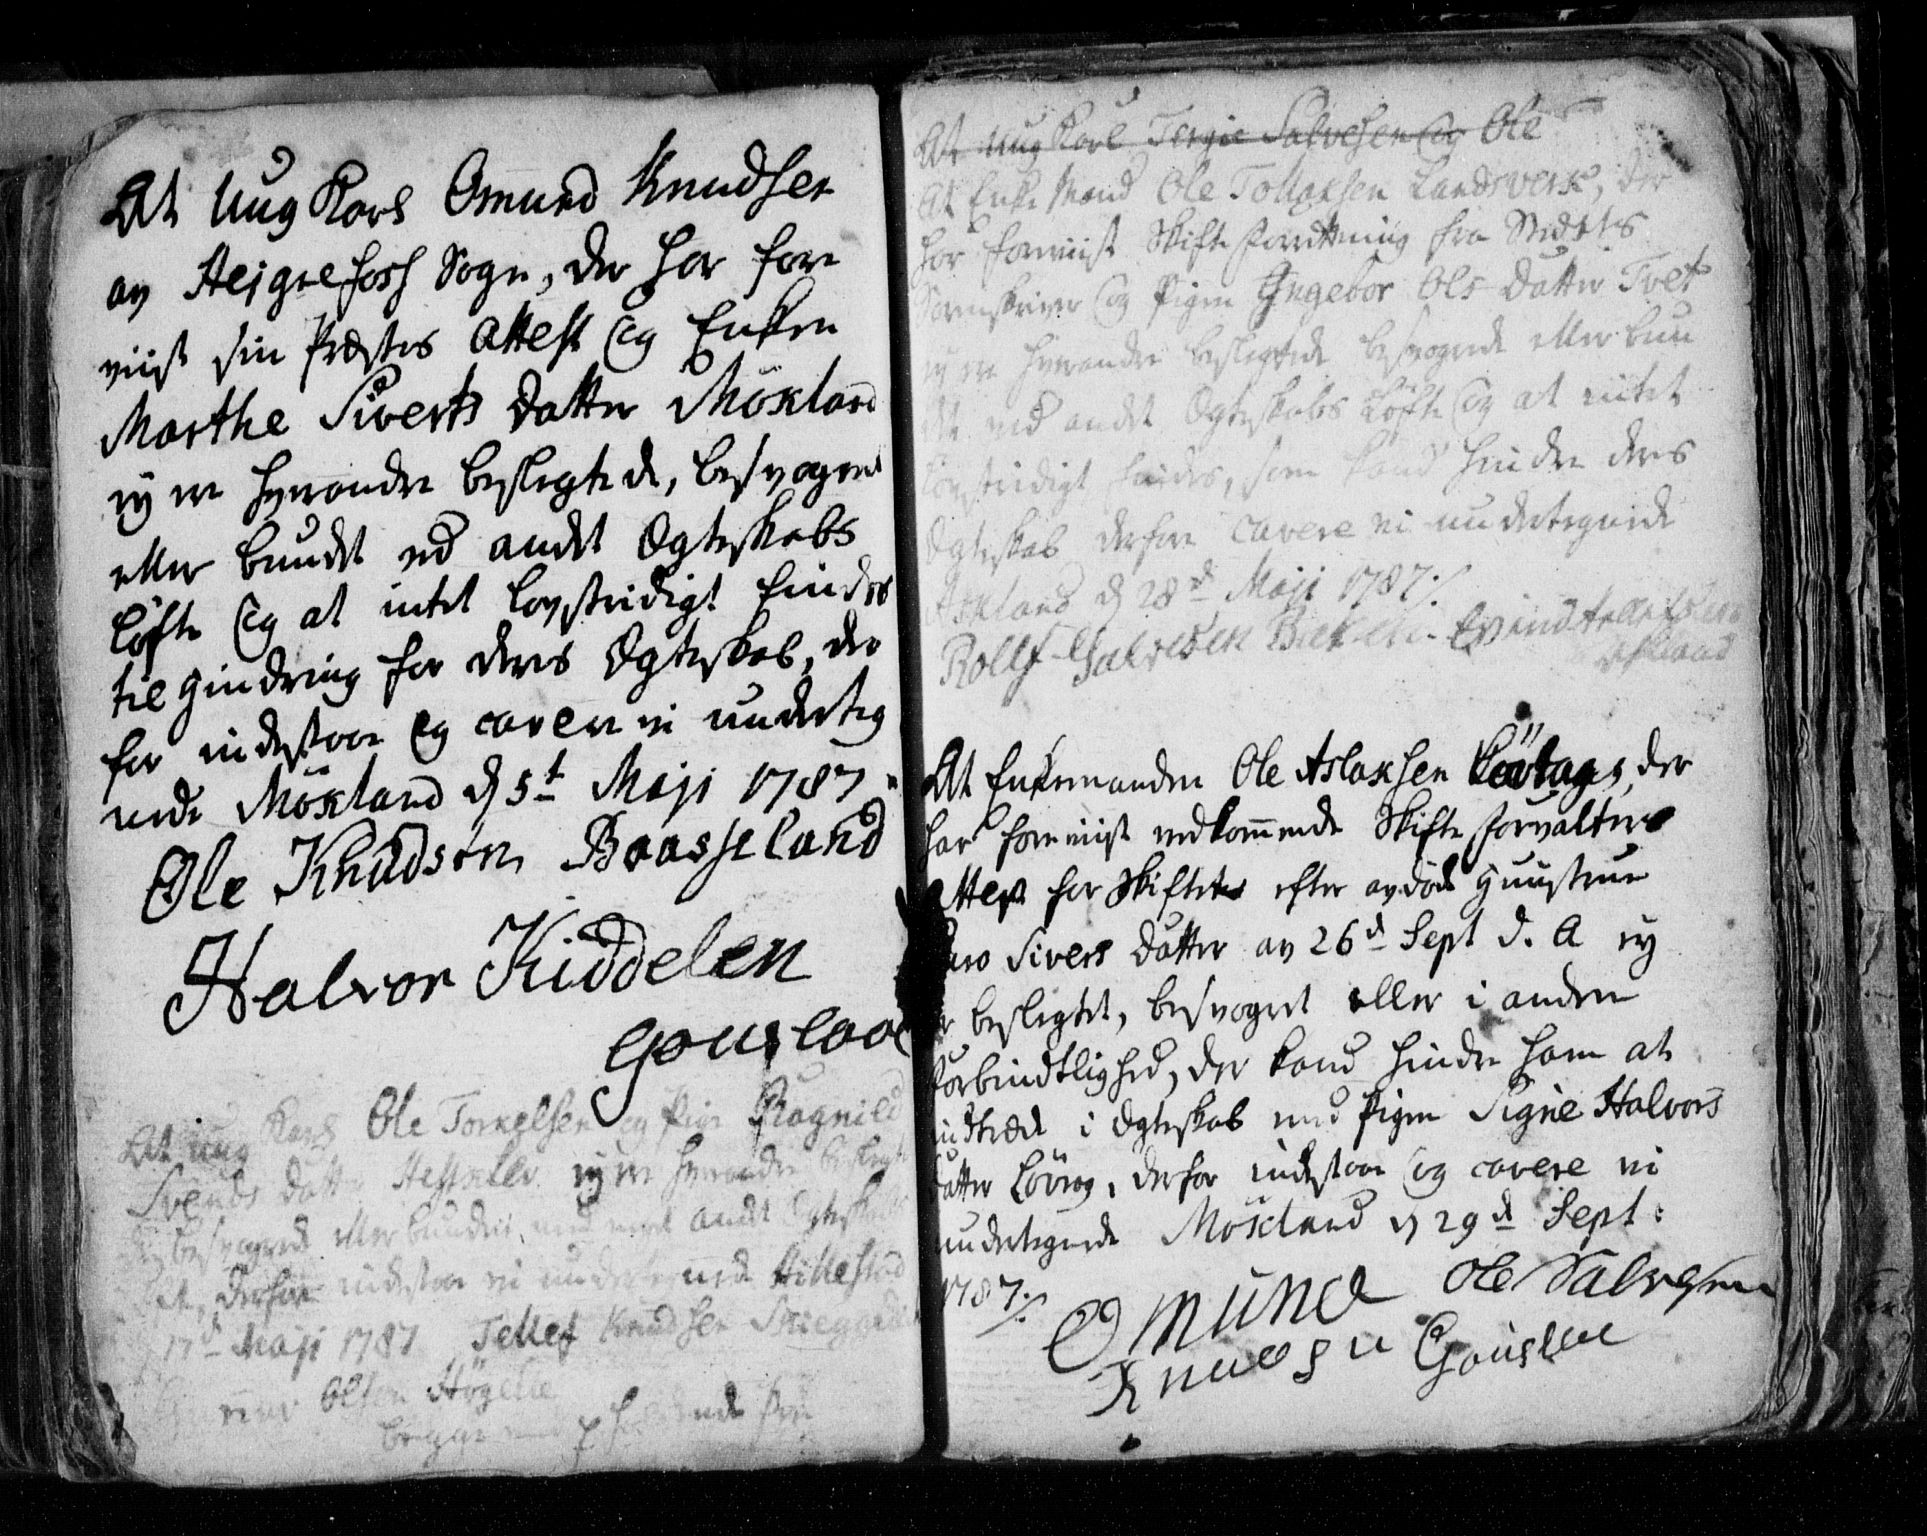 At Ung Karl Omund Knudsen
av Hejgrefoss Sogn, der har fore
viist sin Præstes Attest og Enken
Marthe Siverts datter Möxland
ey ere hverandre beslegtede, besvogrede
eller bundet ved andet Ægteskabs
Løfte og at intet lovstridigt findes
til Hindring for deres Ægteskab, der
for indestaar og cavere vi underteg
nede Möxland d 5t Maji 1787.
Ole Knudsøn Baasseland
Halvor Kiddelsen
Gouslaae
At ung Karl Ole Torkelsen og Pige Ragnild
Svends datter ey ere hverandre beslegte
de, besvogrede eller bundene med noget andet Ægteskabs
Løfte, derfore indestaar vi undertegnede Hillestad
d 17d Maji 1787 Tellef Knudsen
Gunner Olsen
begge med Pen
At Ung Karl Terjie Salvesen og Ole
At Enke Mand Ole Tollaksen Landsverk, der
har foreviist Skifte Forretning fra Stedets
Sorenskriver og Pigen Ingebor Ols datter Tvet
ey ere hverandre beslegtede besvogrede eller bun
dne ved andet Ægteskabs Løfte og at intet
lovstridigt findes, som kand hindre deres
Ægteskab derfore cavere vi undertegnede
Askland d 28d Maji 1787 ./.
Rollf Salvesen Evind tellefsen
Askland
At Enkemanden Ole Aslaksen Lövtags, der
har foreviist vedkommende Skifte Forvalters
Attest for Skiftet efter avdøde Hustrue
Sivers datter av 26d Sept d. A ey
er beslegtet, besvogret eller i anden
Forbindtlighed, der kand hindre ham at
indtræde i Ægteskab med Pigen Signe Halvors
datter Lövrag, derfor indestaar og cavere vi
undertegnede Möxland d 29d Sept:
1787 ./.
Omund Ole Salvesen
Knudsen Gouslaae